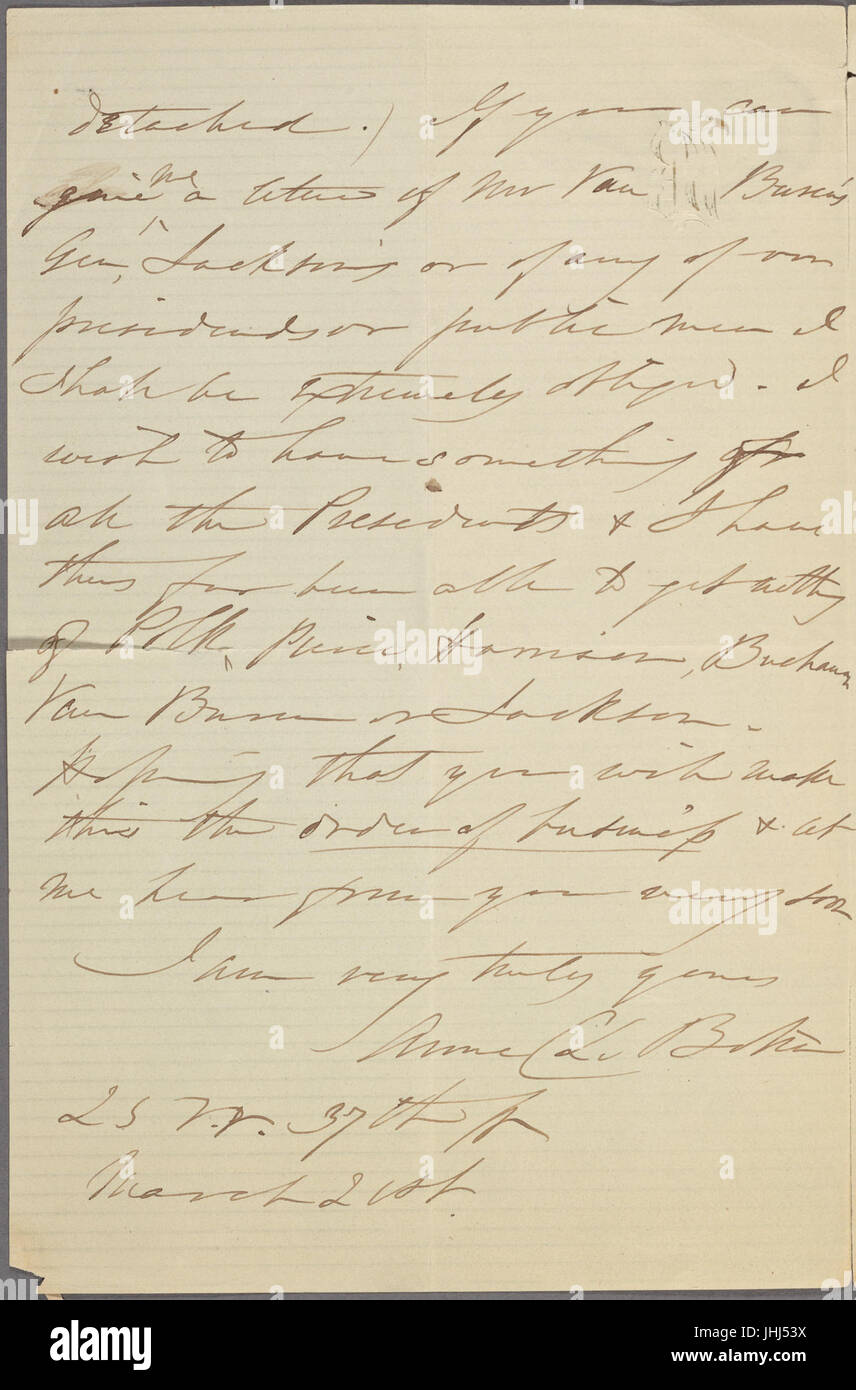 detached.) If you can
give me a letter of Mr Van Buren's
Gen, Jackson's or of any of our
presidents or public men I
shall be extremely obliged. I
wish to have something of
all the Presidents & I have
thus far been able to get nothing
of Polk, Pierce, Harrison, Buchanan
Van Buren or Jackson.
Hoping that you will make
this the order of business & let
me hear from you very soon
I am very truly yours
Anne C L Botta
25 37th
March 21st
alamy stock photo
Image ID: JHJ53X
www.alamy.com